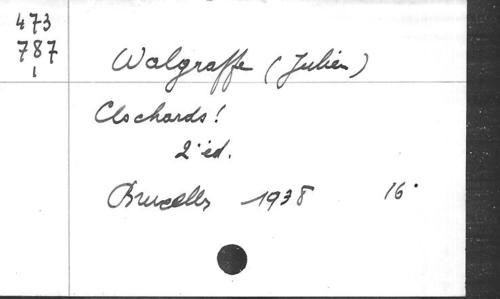 473
787
1
Walgraffe (Julien)
Clochards!
2e éd.
Bruxelles 1938 16°